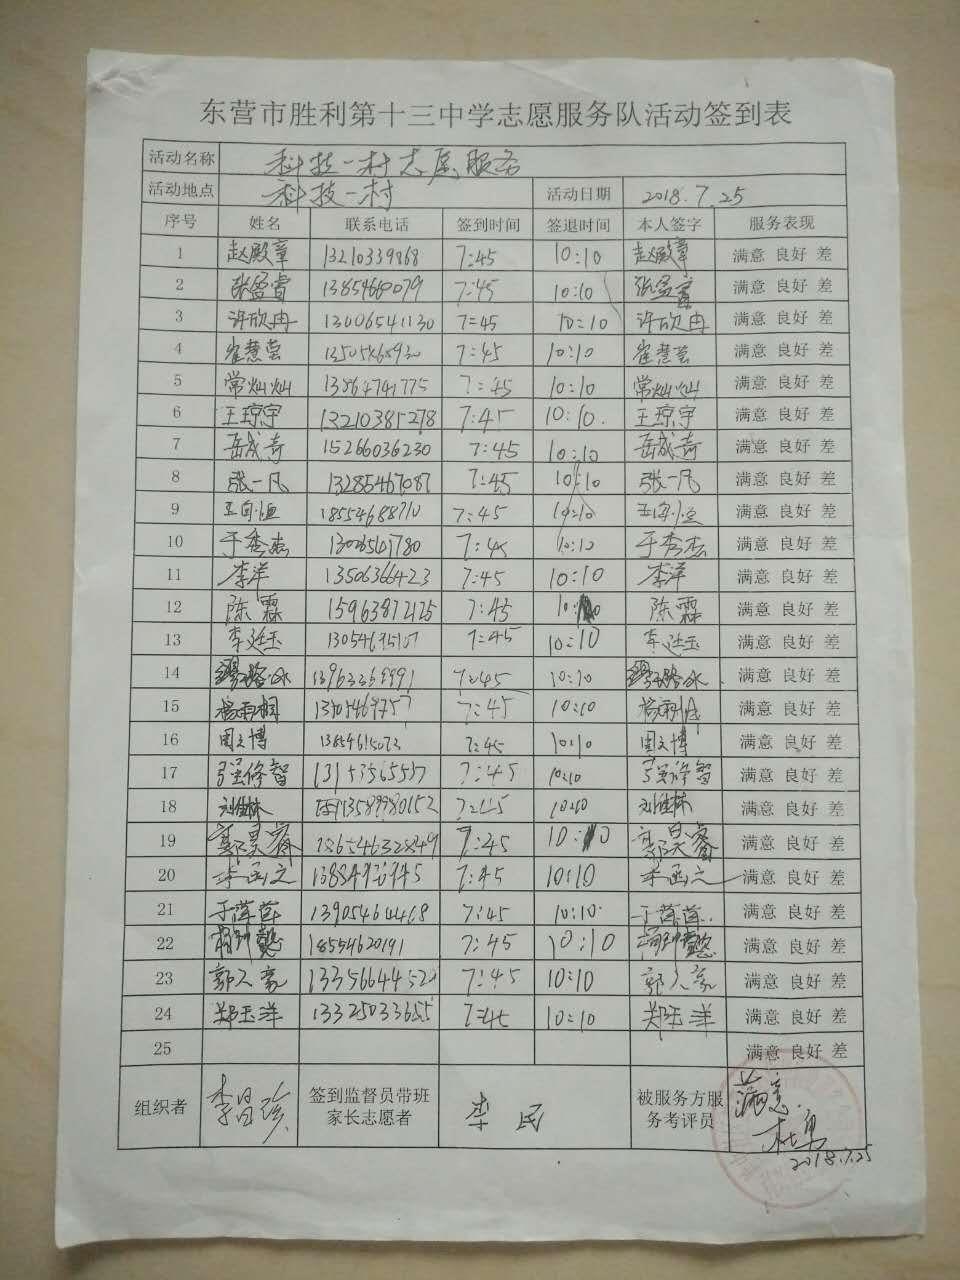 东营市胜利第十三中学志愿服务队活动签到表
活动名称 科技一村志愿服务
活动地点 科技一村 活动日期 2018.7.25
序号 姓名 联系电话 签到时间 签退时间 本人签字 服务表现
1 赵殿章 13210339868 7:45 10:10 赵殿章 满意 良好 差
2 张盈睿 7:45 10:10 张盈睿 满意 良好 差
3 许欣冉 13006541130 7:45 10:10 许欣冉 满意 良好 差
4 崔慧芸 7:45 10:10 崔慧芸 满意 良好 差
5 常灿灿 13864741775 7:45 10:10 常灿灿 满意 良好 差
6 王琼宇 13210385278 7:45 10:10. 王琼宇 满意 良好 差
7 岳成奇 15266036230 7:45 10:10 岳成奇 满意 良好 差
8 张一凡 13285467087 7:45 10:10 张一凡 满意 良好 差
9 18554688710 7:45 10:10 满意 良好 差
10 于秀杰 7:45 10:10 于秀杰 满意 良好 差
11 李洋 13506366423 7:45 10:10 李洋 满意 良好 差
12 陈霖 15963872125 7:45 陈霖 满意 良好 差
13 李延玉 7:45 10:10 李延玉 满意 良好 差
14 7:45 10:10 满意 良好 差
15 杨雨桐 7:45 10:10 满意 良好 差
16 周文博 7:45 10:10 周文博 满意 良好 差
17 强修智 7:45 10:10 强修智 满意 良好 差
18 刘佳林 13589980152 7:45 10:10 刘佳林 满意 良好 差
19 郭昊睿 7:45 郭昊睿 满意 良好 差
20 李函之 7:45 10:10 李函之 满意 良好 差
21 于茸茸 7:45 10:10 于茸茸 满意 良好 差
22 7:45 10:10 满意 良好 差
23 郭人豪 13356644520 7:45 10:10 郭人豪 满意 良好 差
24 郑玉洋 13325033655 7:45 10:10 郑玉洋 满意 良好 差
25 满意 良好 差
组织者 签到监督员带班 被服务方服 满意
家长志愿者 李民 务考评员 杜勇
2018.7.25